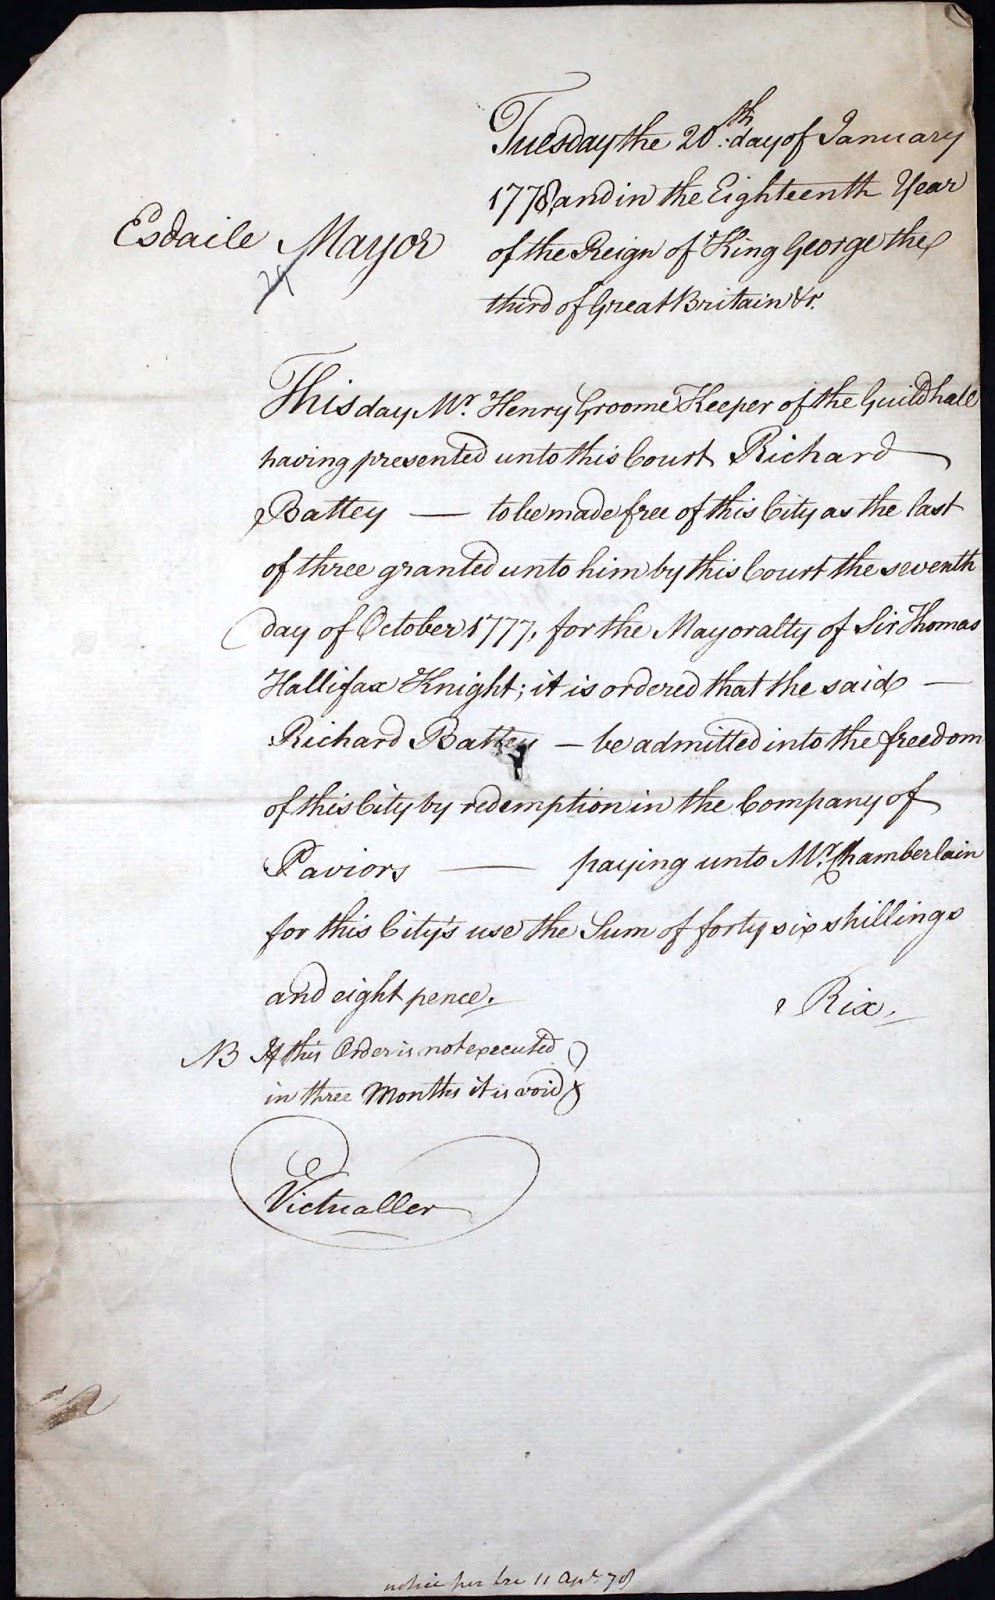 Tuesday the 20th. day of January
1778, and in the Eighteenth Year
of the Reign of King George the
third of Great Britain &c.
Esdaile Mayor
This day Mr. Henry Groome Keeper of the Guildhall
having presented unto this Court Richard
Battey — to be made free of this City as the last
of three granted unto him by this Court the seventh
day of October 1777, for the Mayoralty of Sir Thomas
Hallifax Knight; it is ordered that the said —
Richard Battey — be admitted into the freedom
of this City by redemption in the Company of
Paviors — paying unto Mr. Chamberlain
for this City's use the Sum of forty six shillings
and eight pence.
Rix.
NB If this Order is not executed
in three Months it is void
Victualler
notice per 11 Apl. 78